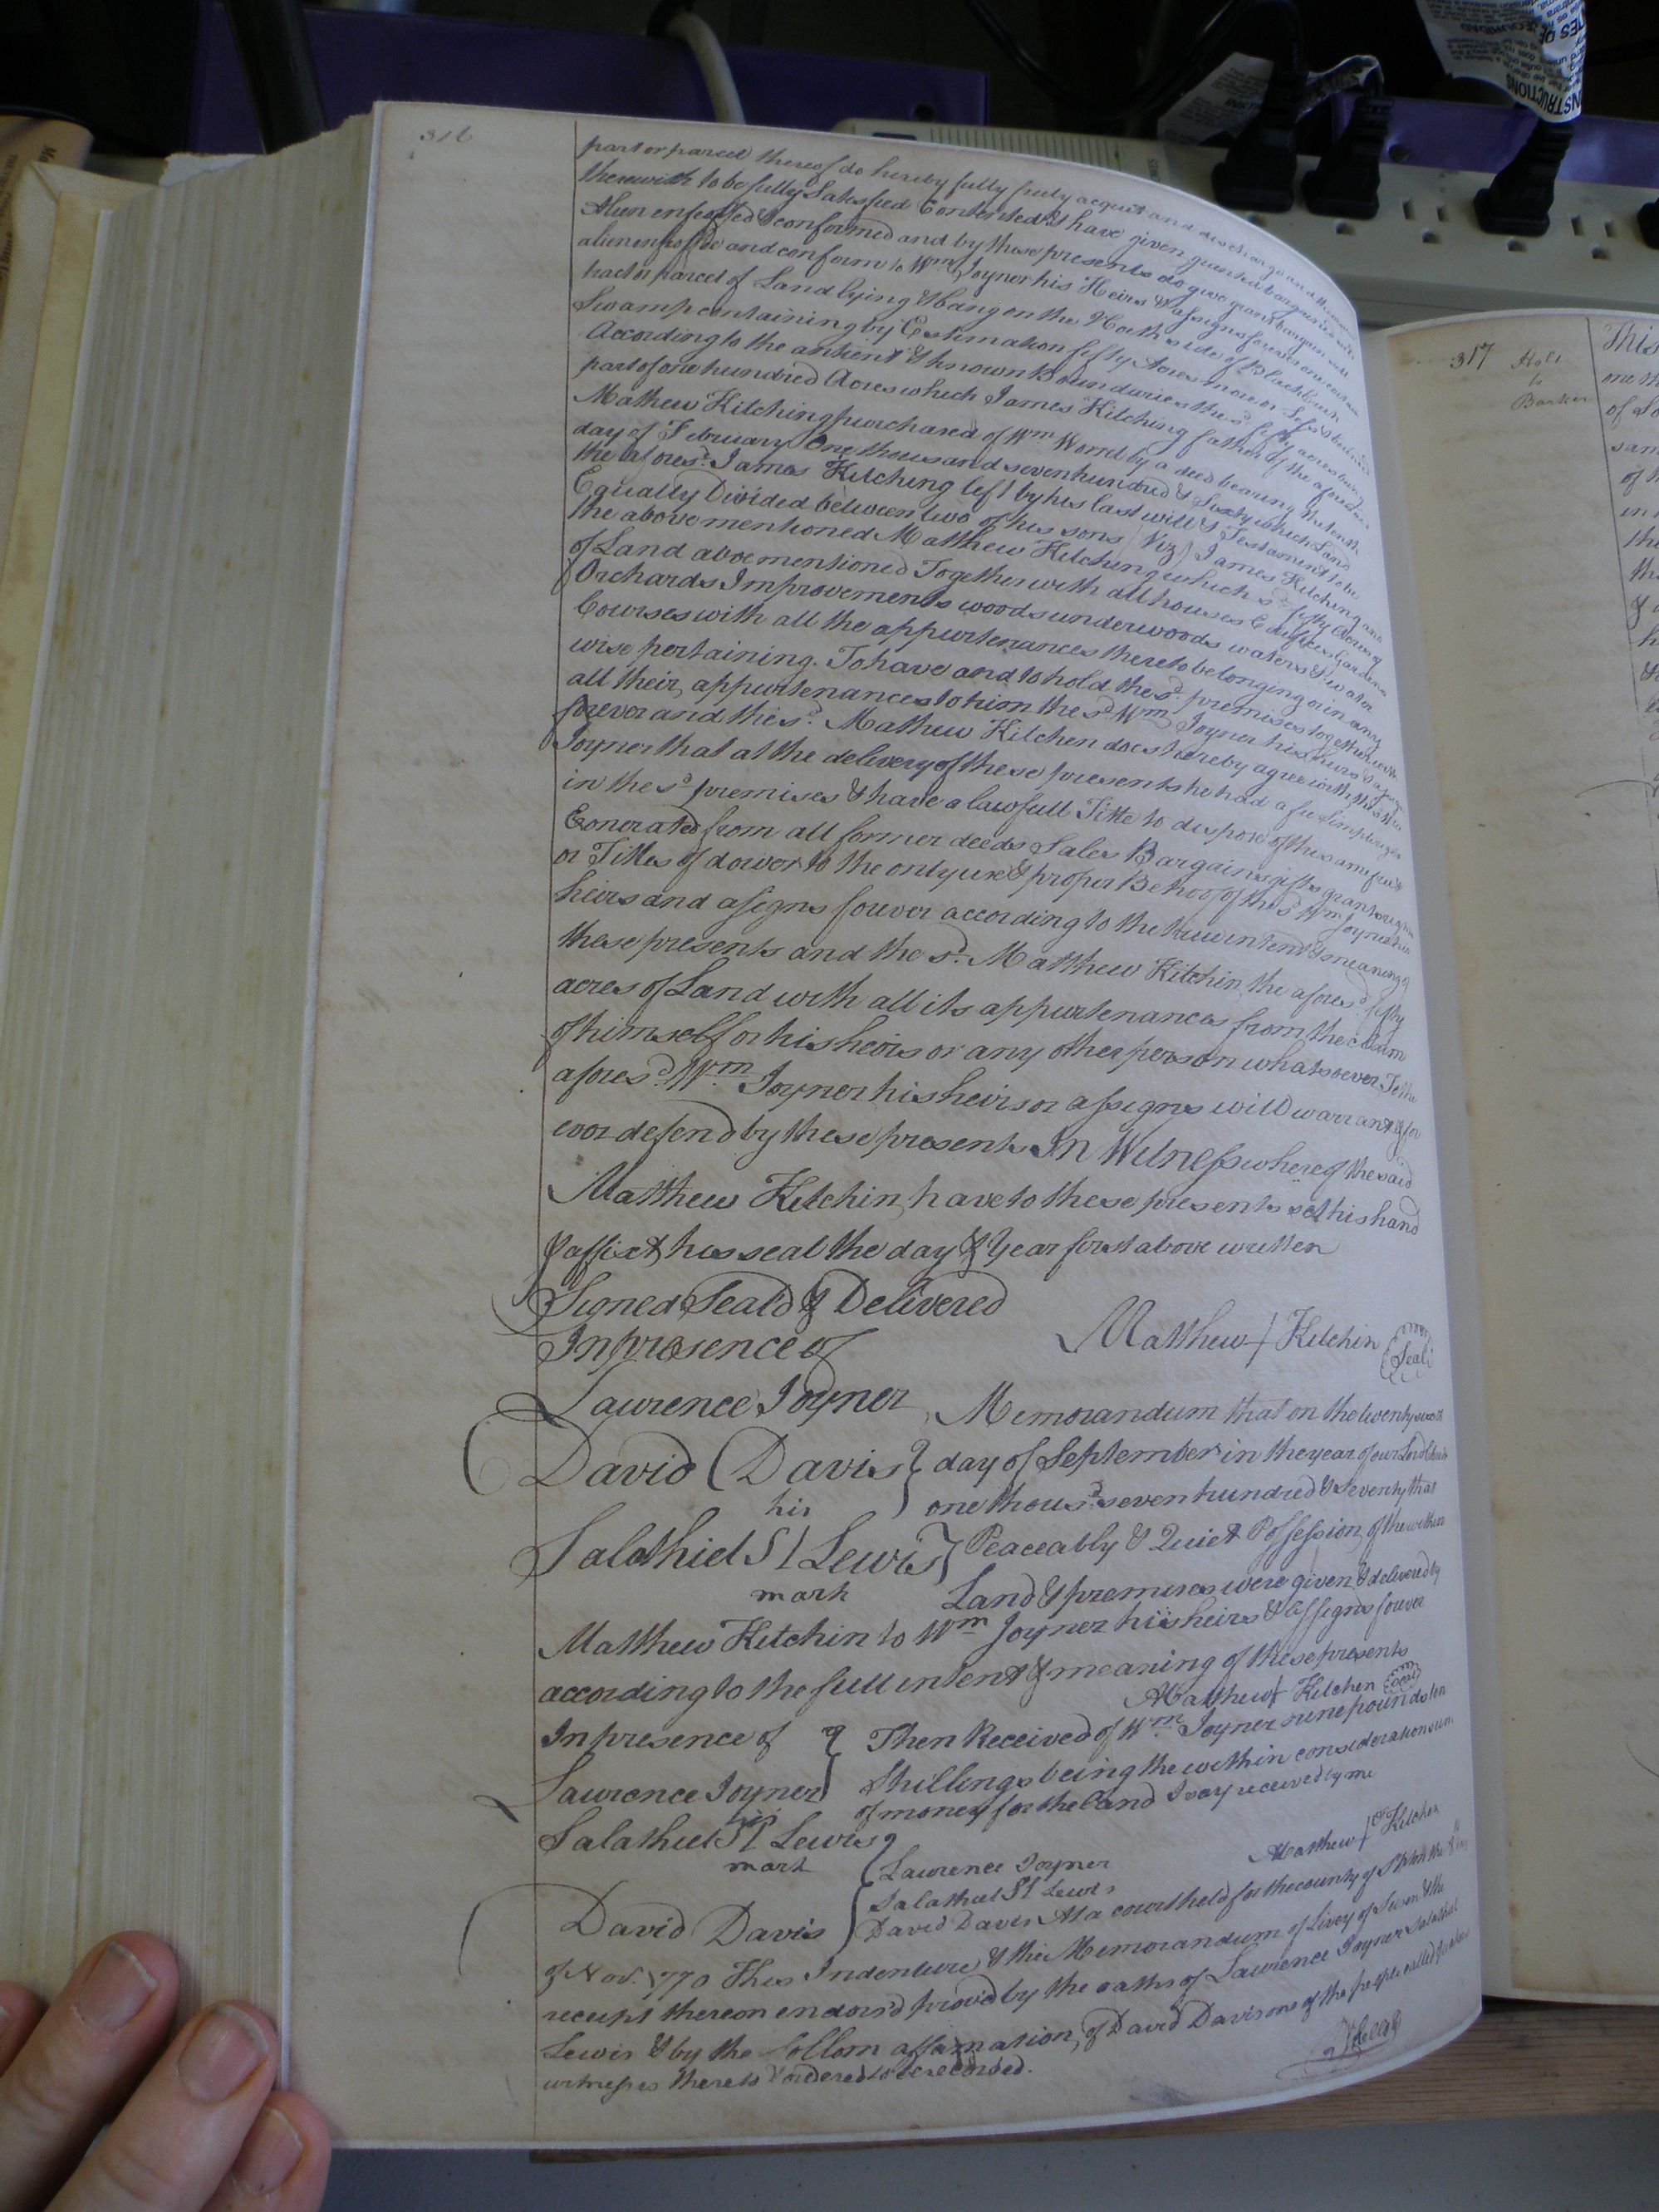 316
part or parcel thereof do hereby fully freely acquit and discharge and
therewith to be fully Satesfied Contented & have given granted bargained
Alien enfeoffed & conformed and by these presents do give grant bargain
alien enfeoffe and conform to Wm Joyner his Heirs & assigns forever one certain
tract or parcel of Land lying & bang on the North side of Blackburn
Swamp containing by Estimation fifty Acres more or Less
According to the antient & known Boundaries the sd. fifty acres being
part of one hundred Acres which James Kitching father of the afores
Mathew Kitching purchased of Wm Worrel by a deed bearing the tenth
day of February One thousand seven hundred & Sixty which Land
the afores.d James Kitching left by his last will & Testament to be
Equally Divided between two of his sons (Viz) James Kitching and
the above mentioned Matthew Kitching which sd fifty Acres
of Land above mentioned Together with all houses Edifices Gardens
Orchards Improvements woods underwoods waters & water
Courses with all the appurtenances thereto belonging or in any
wise pertaining. To have and to hold the sd. premises together with
all their appurtenances to him the sd Wm Joyner his heirs & assigns
forever and the sd. Mathew Kitchen does hereby agree with the sd Wm
Joyner that at the delivery of these presents he had a fee simple
in the sd premises & have a lawfull Title to dispose of the same free &
Exonerated from all former deeds Sales Bargains gifts grants
or Titles of dower to the only use & proper Behoof of the sd Wm Joyner his
heirs and assigns forever according to the true intent & meaning of
these presents and the sd. Matthew Kitchin the aforesd fifty
acres of Land with all its appurtenances from the claim
of himself or his heirs or any other person whatsoever To the
aforesd. Wm Joyner his heirs or assigns will warrant & for
ever defend by these presents In Witness whereof the said
Matthew Kitchin have to these presents set his hand
& affixt his seal the day & Year first above written
Signed Seald & Delivered
In presence of
Matthew + Kitchin Seal
Lawrence Joyner Memorandum that on the twenty
David (Davis day of September in the year of our Lord
his one thousd. seven hundred & Seventy that
Salathiel S I Lewis Peaceably & Quiet Possession of the within
mark Land & premises were given & delivered by
Matthew Kitchin to Wm Joyner his heirs & assigns forever
according to the full intent & meaning of these presents
Matthew + Kitchen Seal
In presence of Then Received of Wm Joyner nine pounds ten
Lawrence Joyner Shillings being the within consideration
his of money for the land I say received by me
Salathiel S I Lewis
mark
Matthew + Kitchen
Lawrence Joyner
Salathiel S I Lewis
David Davis David Davis At a court held for the county of the
of Nov. 1770 This Indenture & the Memorandum of Livery of Seison & the
receipt thereon endors'd proved by the oaths of Lawrence Joyner Salathiel
Lewis & by the Sollom affirmation of David Davis one of the people called
witnesses thereto & ordered to be recorded.
317
Holt
to
Barker
This